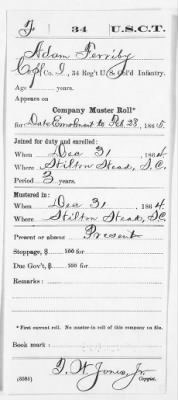 F 34 U.S.C.T.
Adam Ferriby
Cpl Co. I, 34 Reg't U. S. Col'd Infantry.
Age years.
Appears on
Company Muster Roll*
for Date Enrolment to Feb 28, 1865.
Joined for duty and enrolled:
When Dec 31, 1864.
Where Hilton Head, S.C.
Period 3 years.
Mustered in:
When Dec 31, 1864
Where Hilton Head, SC
Present or absent Present
Stoppage, $ 100 for
Due Gov't, $ 100 for
Remarks:
* First current roll. No muster-in roll of this company on file.
Book mark:
(858i) Copyist.